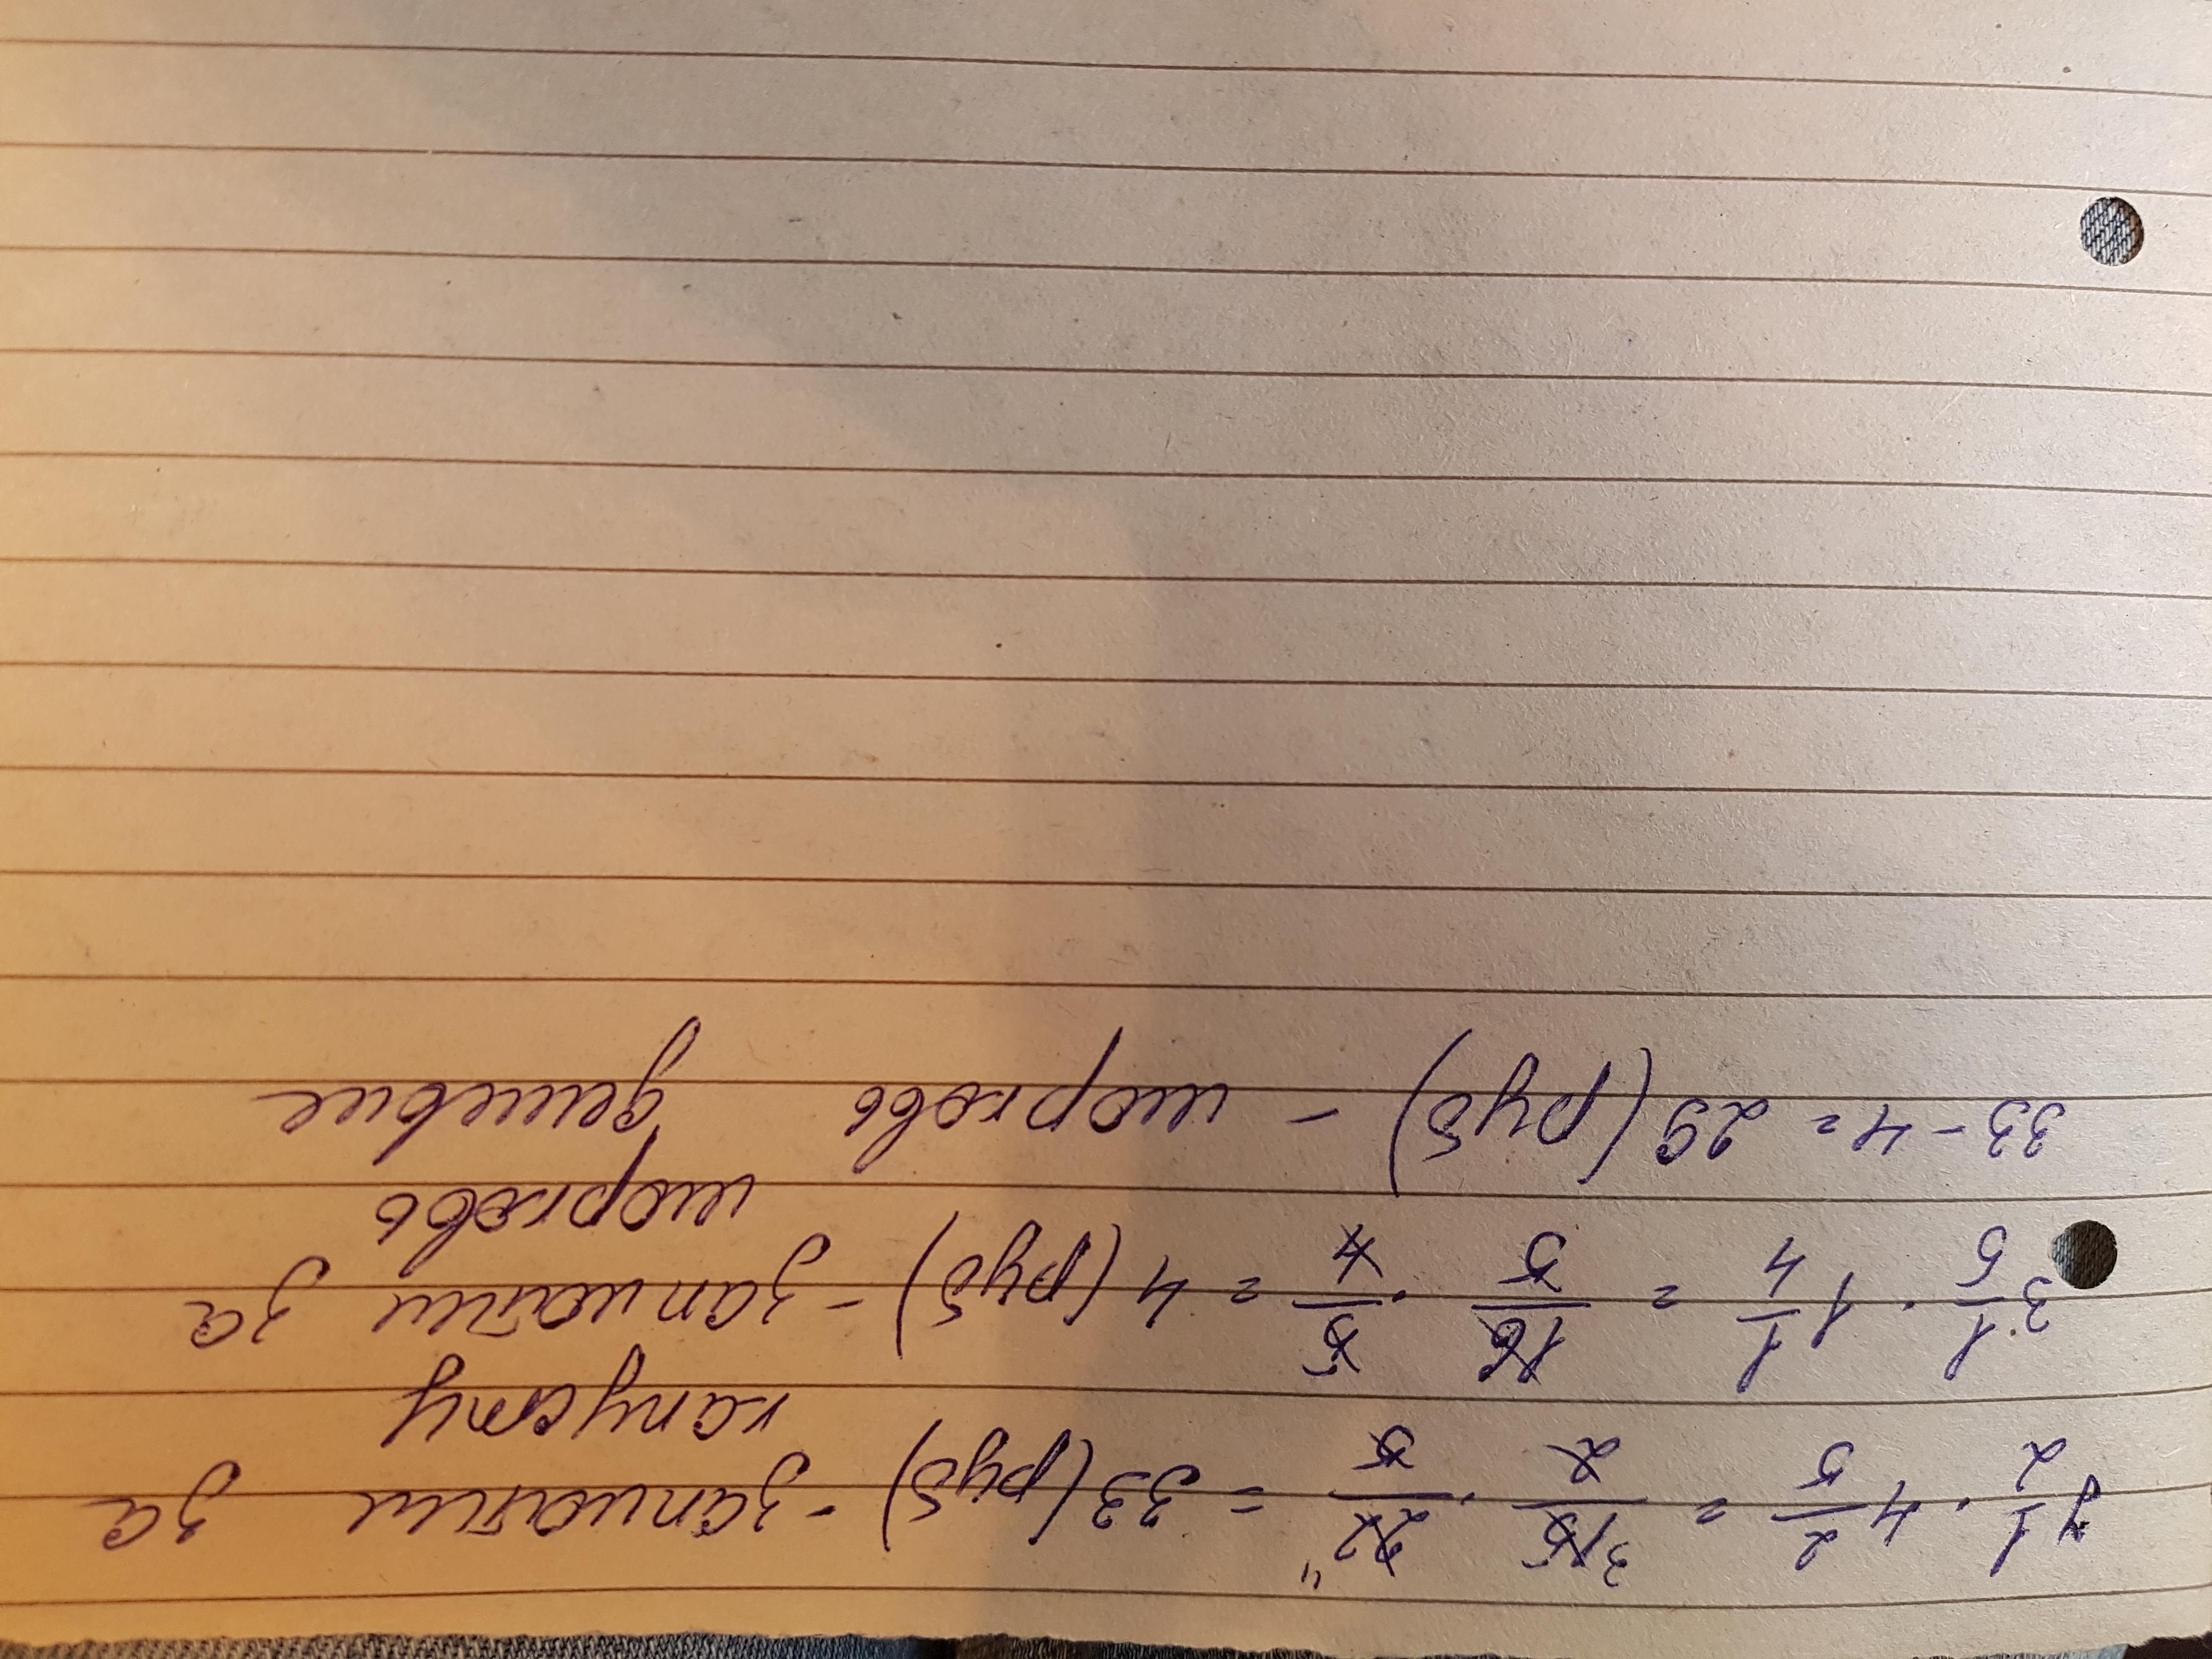 7 1/2 · 4 2/5 = 15/2 · 22/5 = 33 (руб) - заплатили за
капусту
3 1/5 · 1 1/4 = 16/5 · 5/4 = 4 (руб) - заплатили за
морковь
33 - 4 = 29 (руб) - морковь дешевле